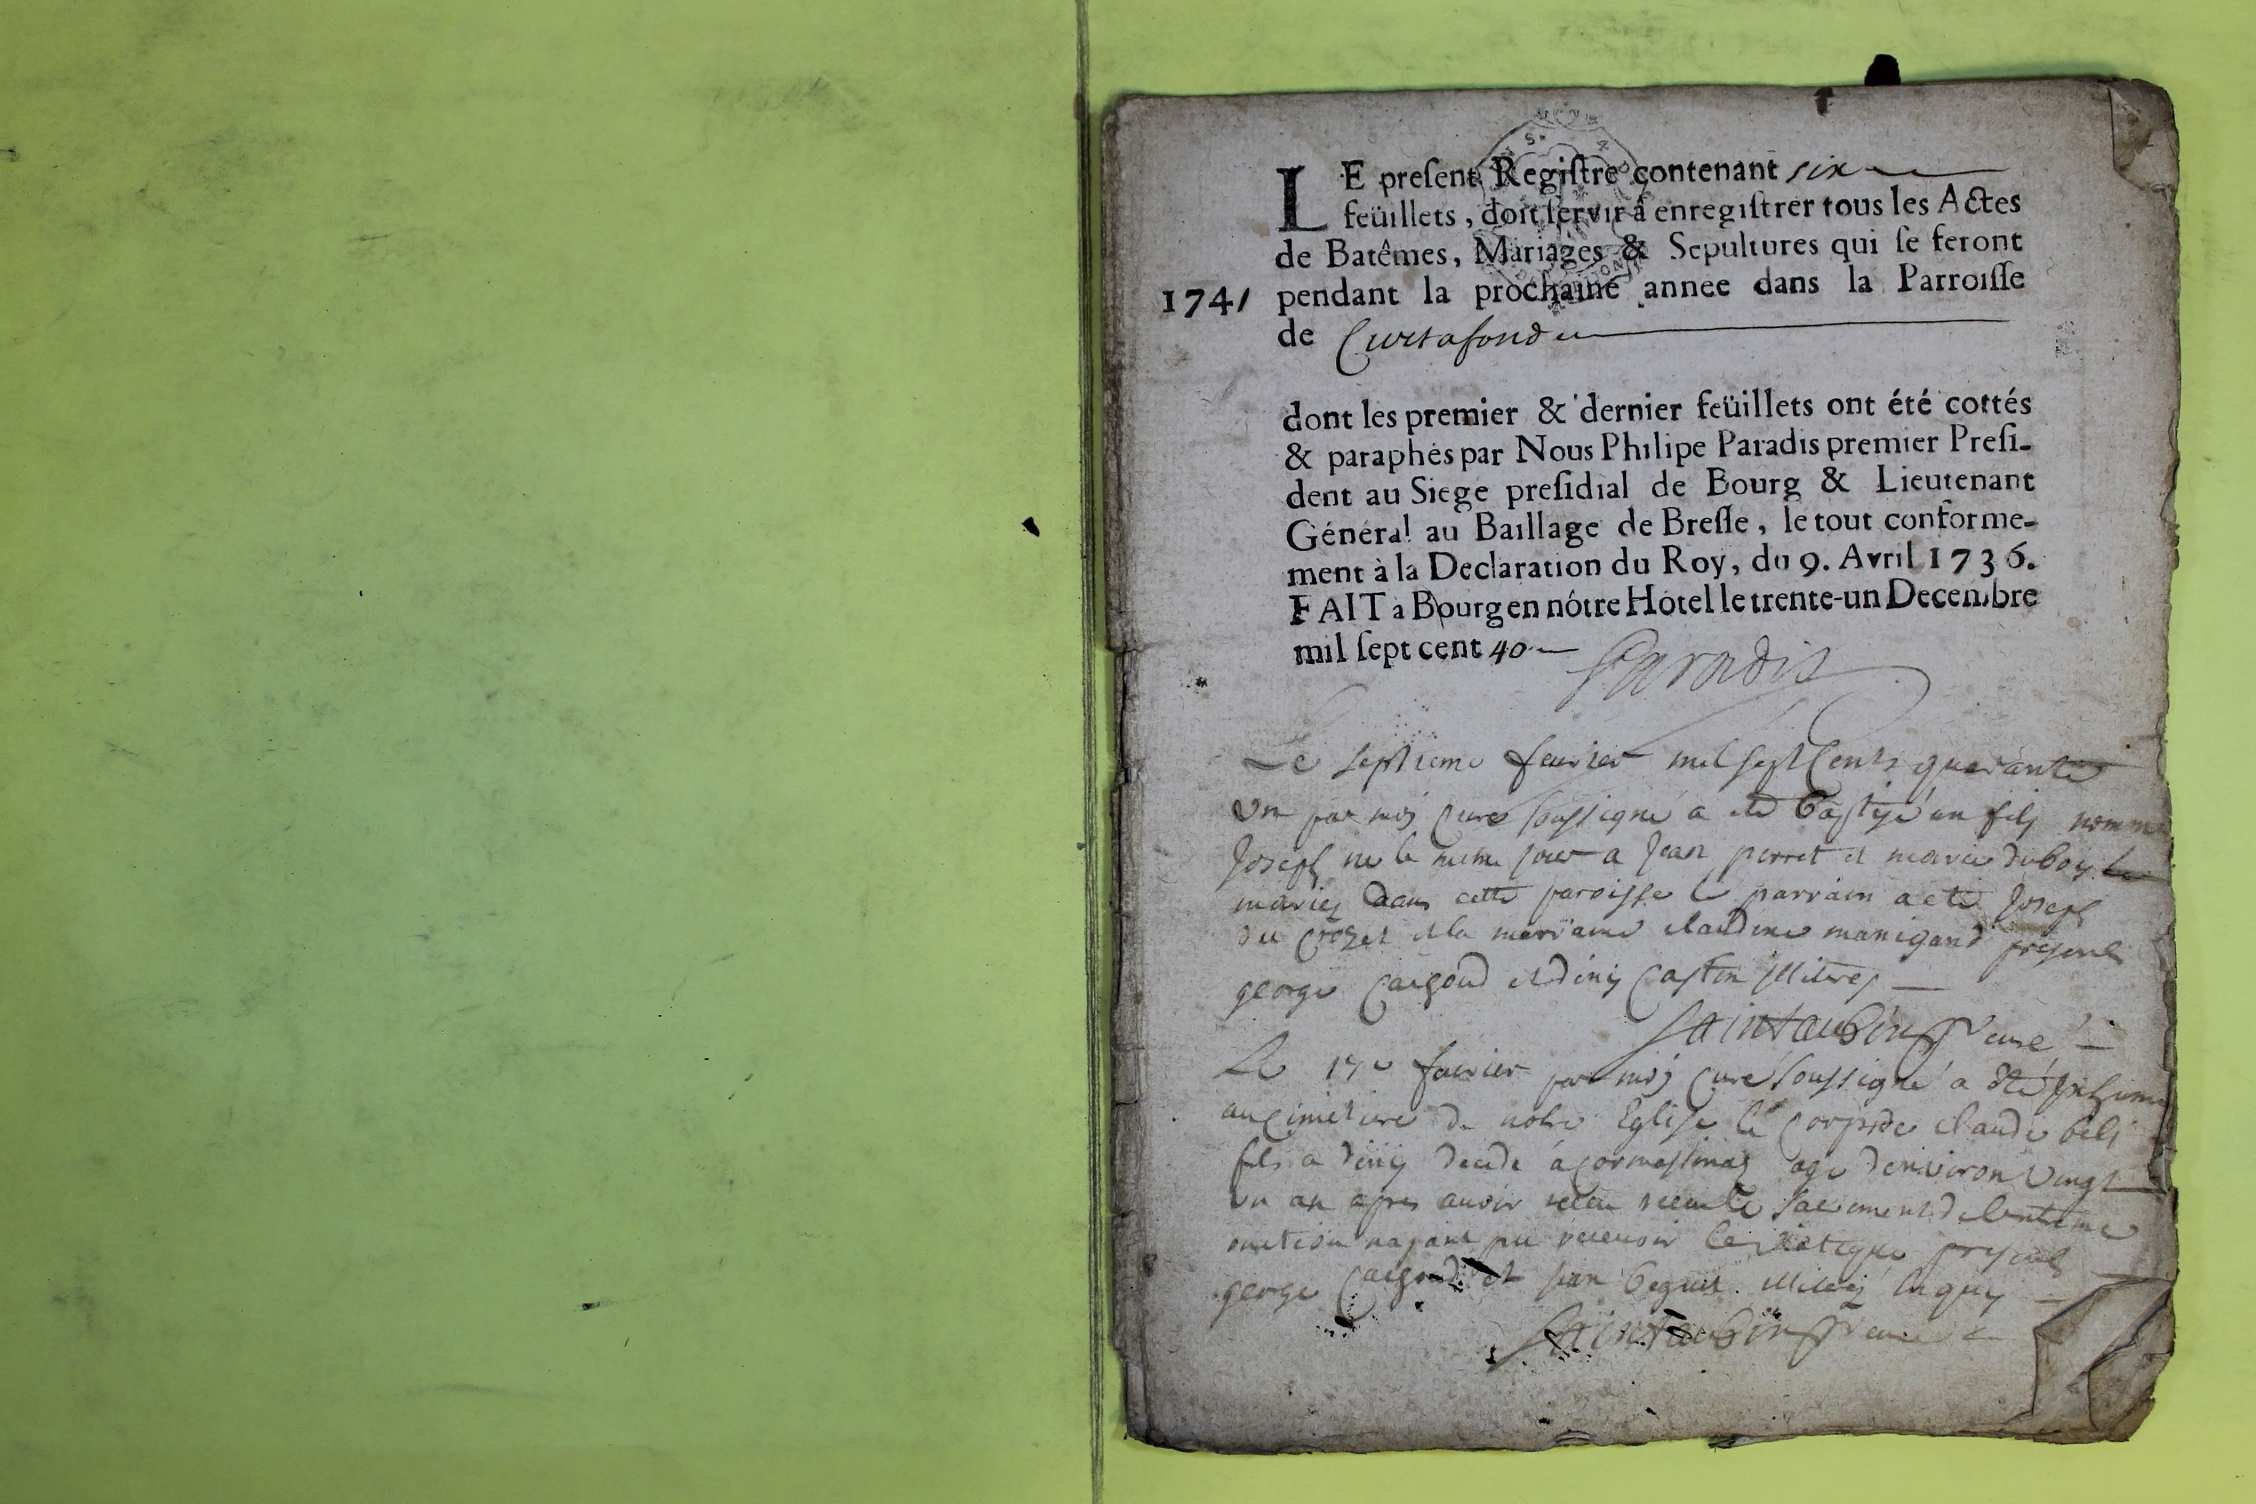 LE preſent Regiſtre contenant six
feüillets, doit ſervir à enregiſtrer tous les Actes
de Batêmes, Mariages & Sepultures qui ſe feront
1741 pendant la prochaine annee dans la Parroiſſe
de Curtafond
dont les premier & dernier feüillets ont été cottés
& paraphés par Nous Philipe Paradis premier Preſi-
dent au Siege preſidial de Bourg & Lieutenant
Général au Baillage de Breſſe, le tout conforme-
ment à la Declaration du Roy, du 9. Avril 1736.
FAIT à Bourg en nôtre Hôtel le trente-un Decembre
mil ſept cent 40
Paradis
Le septieme fevrier mil sept Cents quarante
un par moy Curé soussigné a eté baptisé un fils nommé
Joseph né le meme jour a Jean perret et marie duboy
mariez dans cette paroisse le parrain a eté Joseph
du Crozet et la marraine claudine manigand presents
george et denis Castin
Saintaubin curé
Le fevrier par moy Curé soussigné a eté Inhumé
au Cimetiere de notre Eglise le Corps de claude
fils a denis decedé a agé denviron vingt
un an apres avoir receu le sacrement de lextreme
onction nayant pu recevoir le viatique presents
george et jean
Saintaubin curé